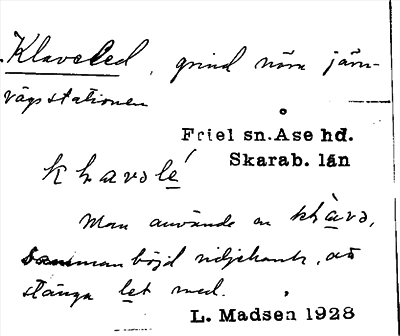 Klaveled, grind nära järn-
vägsstationen
Friel sn. Åse hd.
Skarab. län
khavəlé
Man använde en khàvə,
sammanböjd vidjehank, att
stänga let med.
L. Madsen 1928